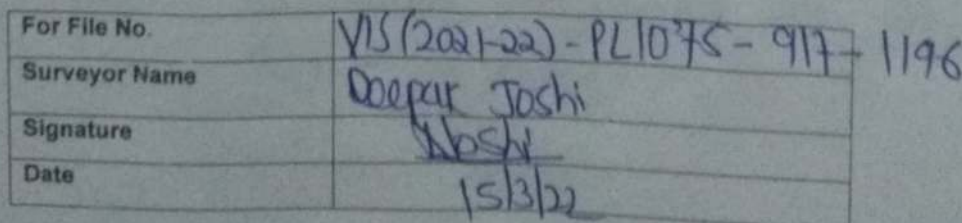 For File No. VIS(2021-22)-PL1075-917-1196
Surveyor Name Deepak Joshi
Signature DJoshi
Date 15/3/22